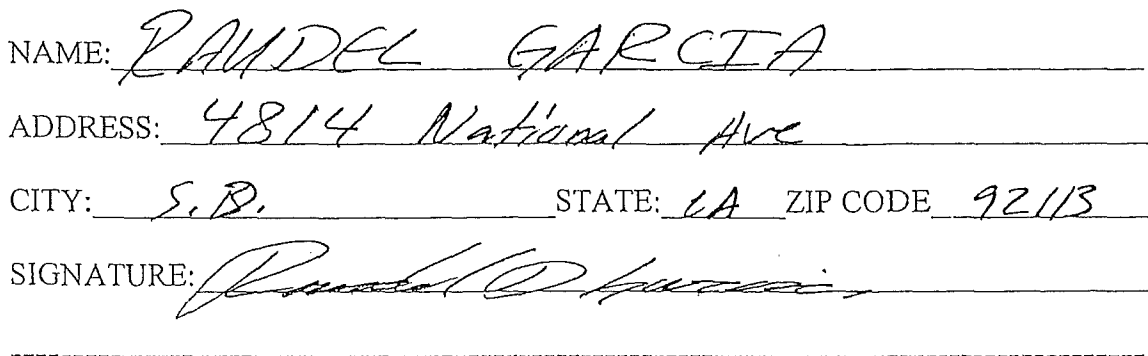 NAME: RAUDEL GARCIA
ADDRESS: 4814 National Ave
CITY: S.D. STATE: CA ZIP CODE 92113
SIGNATURE: